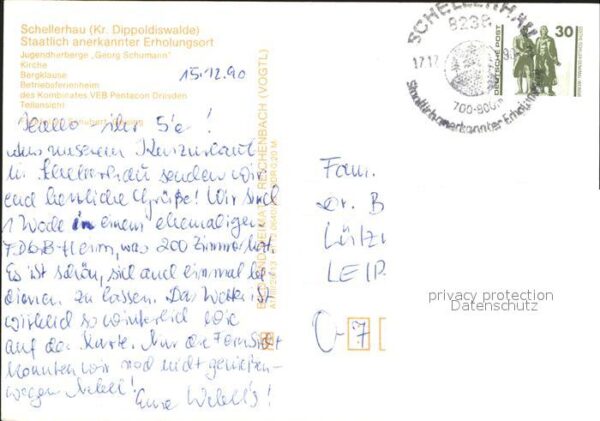 Schellerhau (Kr. Dippoldiswalde)
Staatlich anerkannter Erholungsort
Jugendherberge „Georg Schumann"
Kirche
Bergklause
Betriebsferienheim
des Kombinates VEB Pentacon Dresden
Teilansicht
15.12.90
Hallo – ihr 5'e!
Aus unserem Kurzurlaub
in Schellerhau senden wir
euch herzliche Grüße! Wir sind
1 Woche in einem ehemaligen
FDGB-Heim, was 200 Zimmer hat.
Es ist schön, sich auch einmal be-
dienen zu lassen. Das Wetter ist
wirklich so winterlich wie
auf der Karte. Nur die Fernsicht
konnten wir noch nicht genießen-
wegen Nebel!
Eure
BILD UND HEIMAT REICHENBACH (VOGTL)
SCHELLERHAU
8238
17.12.
700-800m
Staatlich anerkannter Erholungsort
DEUTSCHE POST
30
Fam.
Dr. B
LEIP
O-7
privacy protection
Datenschutz